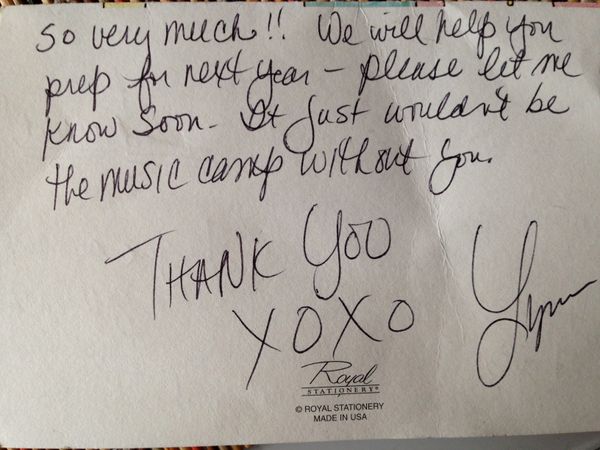 So very much!! We will help you
prep for next year - please let me
know soon. It just wouldn't be
the music camp without you.
THANK YOU
XOXO Lynn
Royal
STATIONERY®
© ROYAL STATIONERY
MADE IN USA